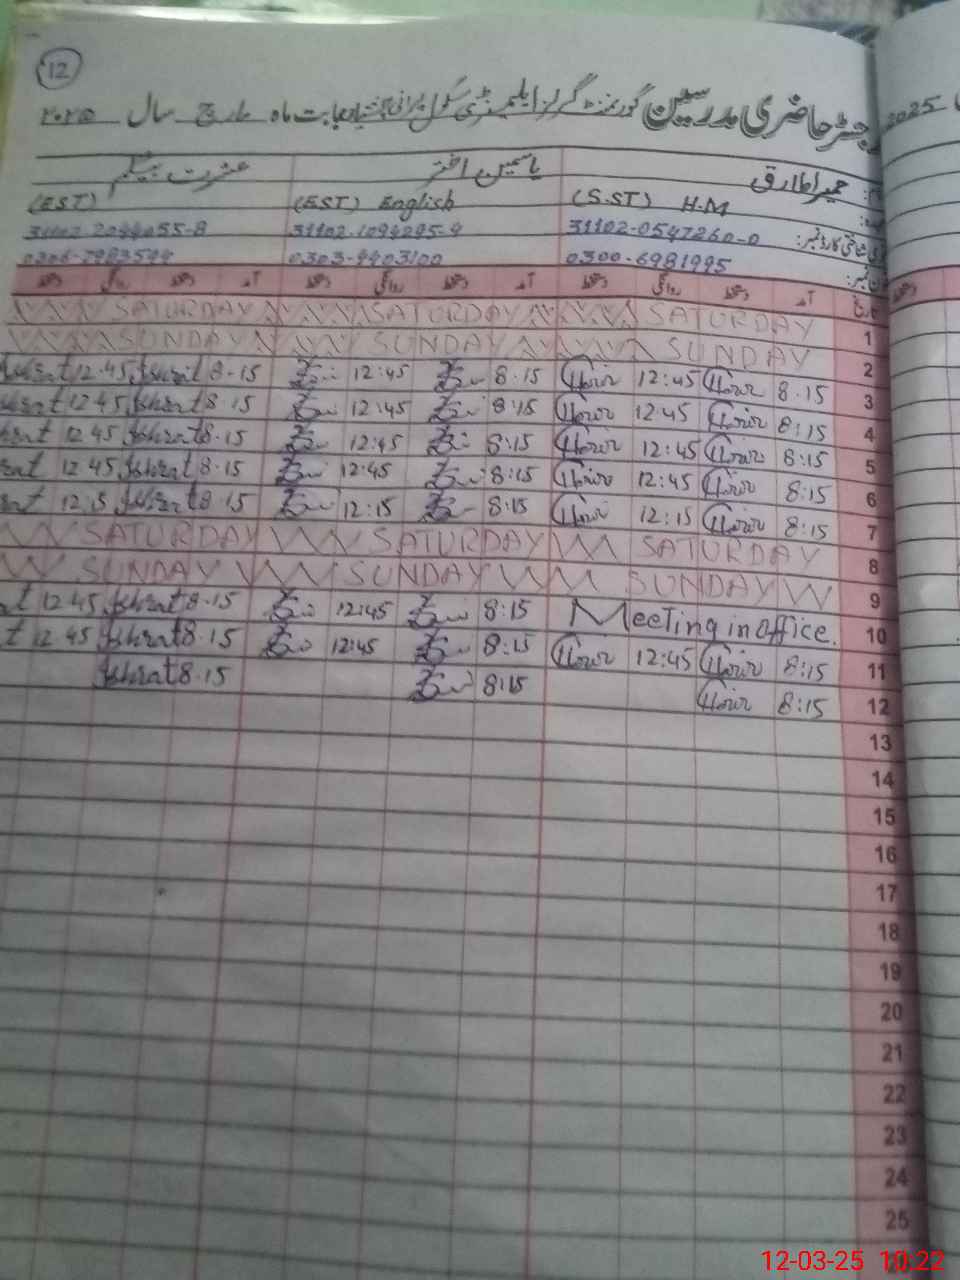 12
رجسٹر حاضری مدرسین گورنمنٹ گرلز ایلیمنٹری سکول بابت ماہ مارچ سال ۲۰۲۵
2025
حمیرا طارق یاسمین اختر عشرت بیگم
(S.ST) H.M (EST) English (EST)
شناختی کارڈ نمبر: 31102-0547260-0 31102-1094295-4 31102-2044055-8
0300-6981995 0303-9403100 0306-7983594
تاریخ آمد دستخط روانگی دستخط آمد دستخط روانگی دستخط آمد دستخط روانگی دستخط
1 SATURDAY SATURDAY SATURDAY
2 SUNDAY SUNDAY SUNDAY
3 8.15 12:45 8.15 12:45 8.15 Ishrat 12.45
4 8:15 12:45 8:15 12:45 8.15 Ishrat 12 45
5 8:15 12:45 8:15 12:45 8.15 Ishrat 12 45
6 8:15 12:45 8:15 12:45 8.15 Ishrat 12 45
7 8:15 12:15 8:15 12:15 8.15 Ishrat
8 SATURDAY SATURDAY SATURDAY
9 SUNDAY SUNDAY SUNDAY
10 Meeting in office. 8:15 12:45 8.15 Ishrat 12 45
11 8:15 12:45 8:15 12:45 8.15 Ishrat 12.45
12 8:15 8:15 8.15 Ishrat
13
14
15
16
17
18
19
20
21
22
23
24
25
12-03-25 10:22